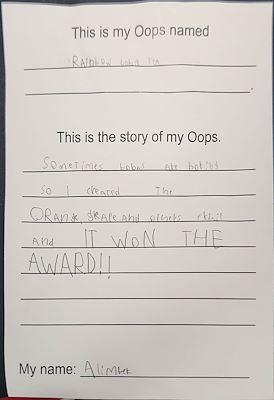 This is my Oops named
Rainbow boba tea
This is the story of my Oops.
Sometimes bobas are boring
So I created The
ORange, grape, and others
And IT WON THE
AWARD!!
My name: